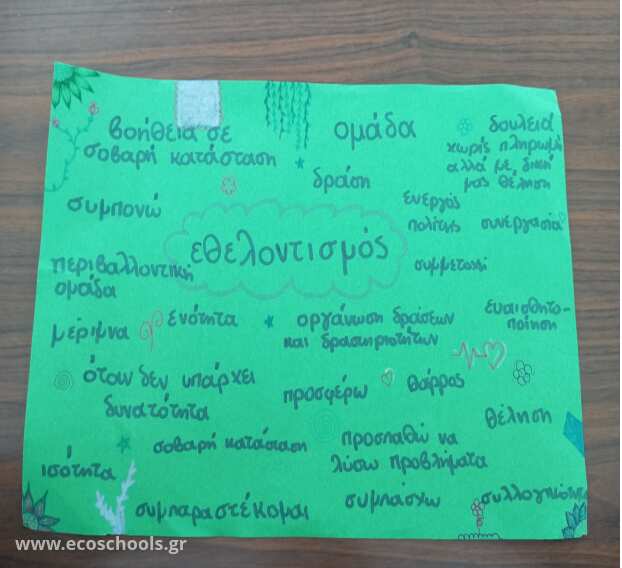 βοήθεια σε
σοβαρή κατάσταση
ομάδα
δουλειά
χωρίς πληρωμή
αλλά με δική
μας θέληση
δράση
ενεργός
πολίτης
συνεργασία
συμπονώ
εθελοντισμός
συμμετοχή
περιβαλλοντική
ομάδα
μέριμνα
ενότητα
οργάνωση δράσεων
και δραστηριοτήτων
ευαισθητο-
ποίηση
όταν δεν υπάρχει
δυνατότητα
προσφέρω
θάρρος
θέληση
σοβαρή κατάσταση
προσπαθώ να
λύσω προβλήματα
ισότητα
συμπαραστέκομαι
συμπάσχω
συλλογικότητα
www.ecoschools.gr